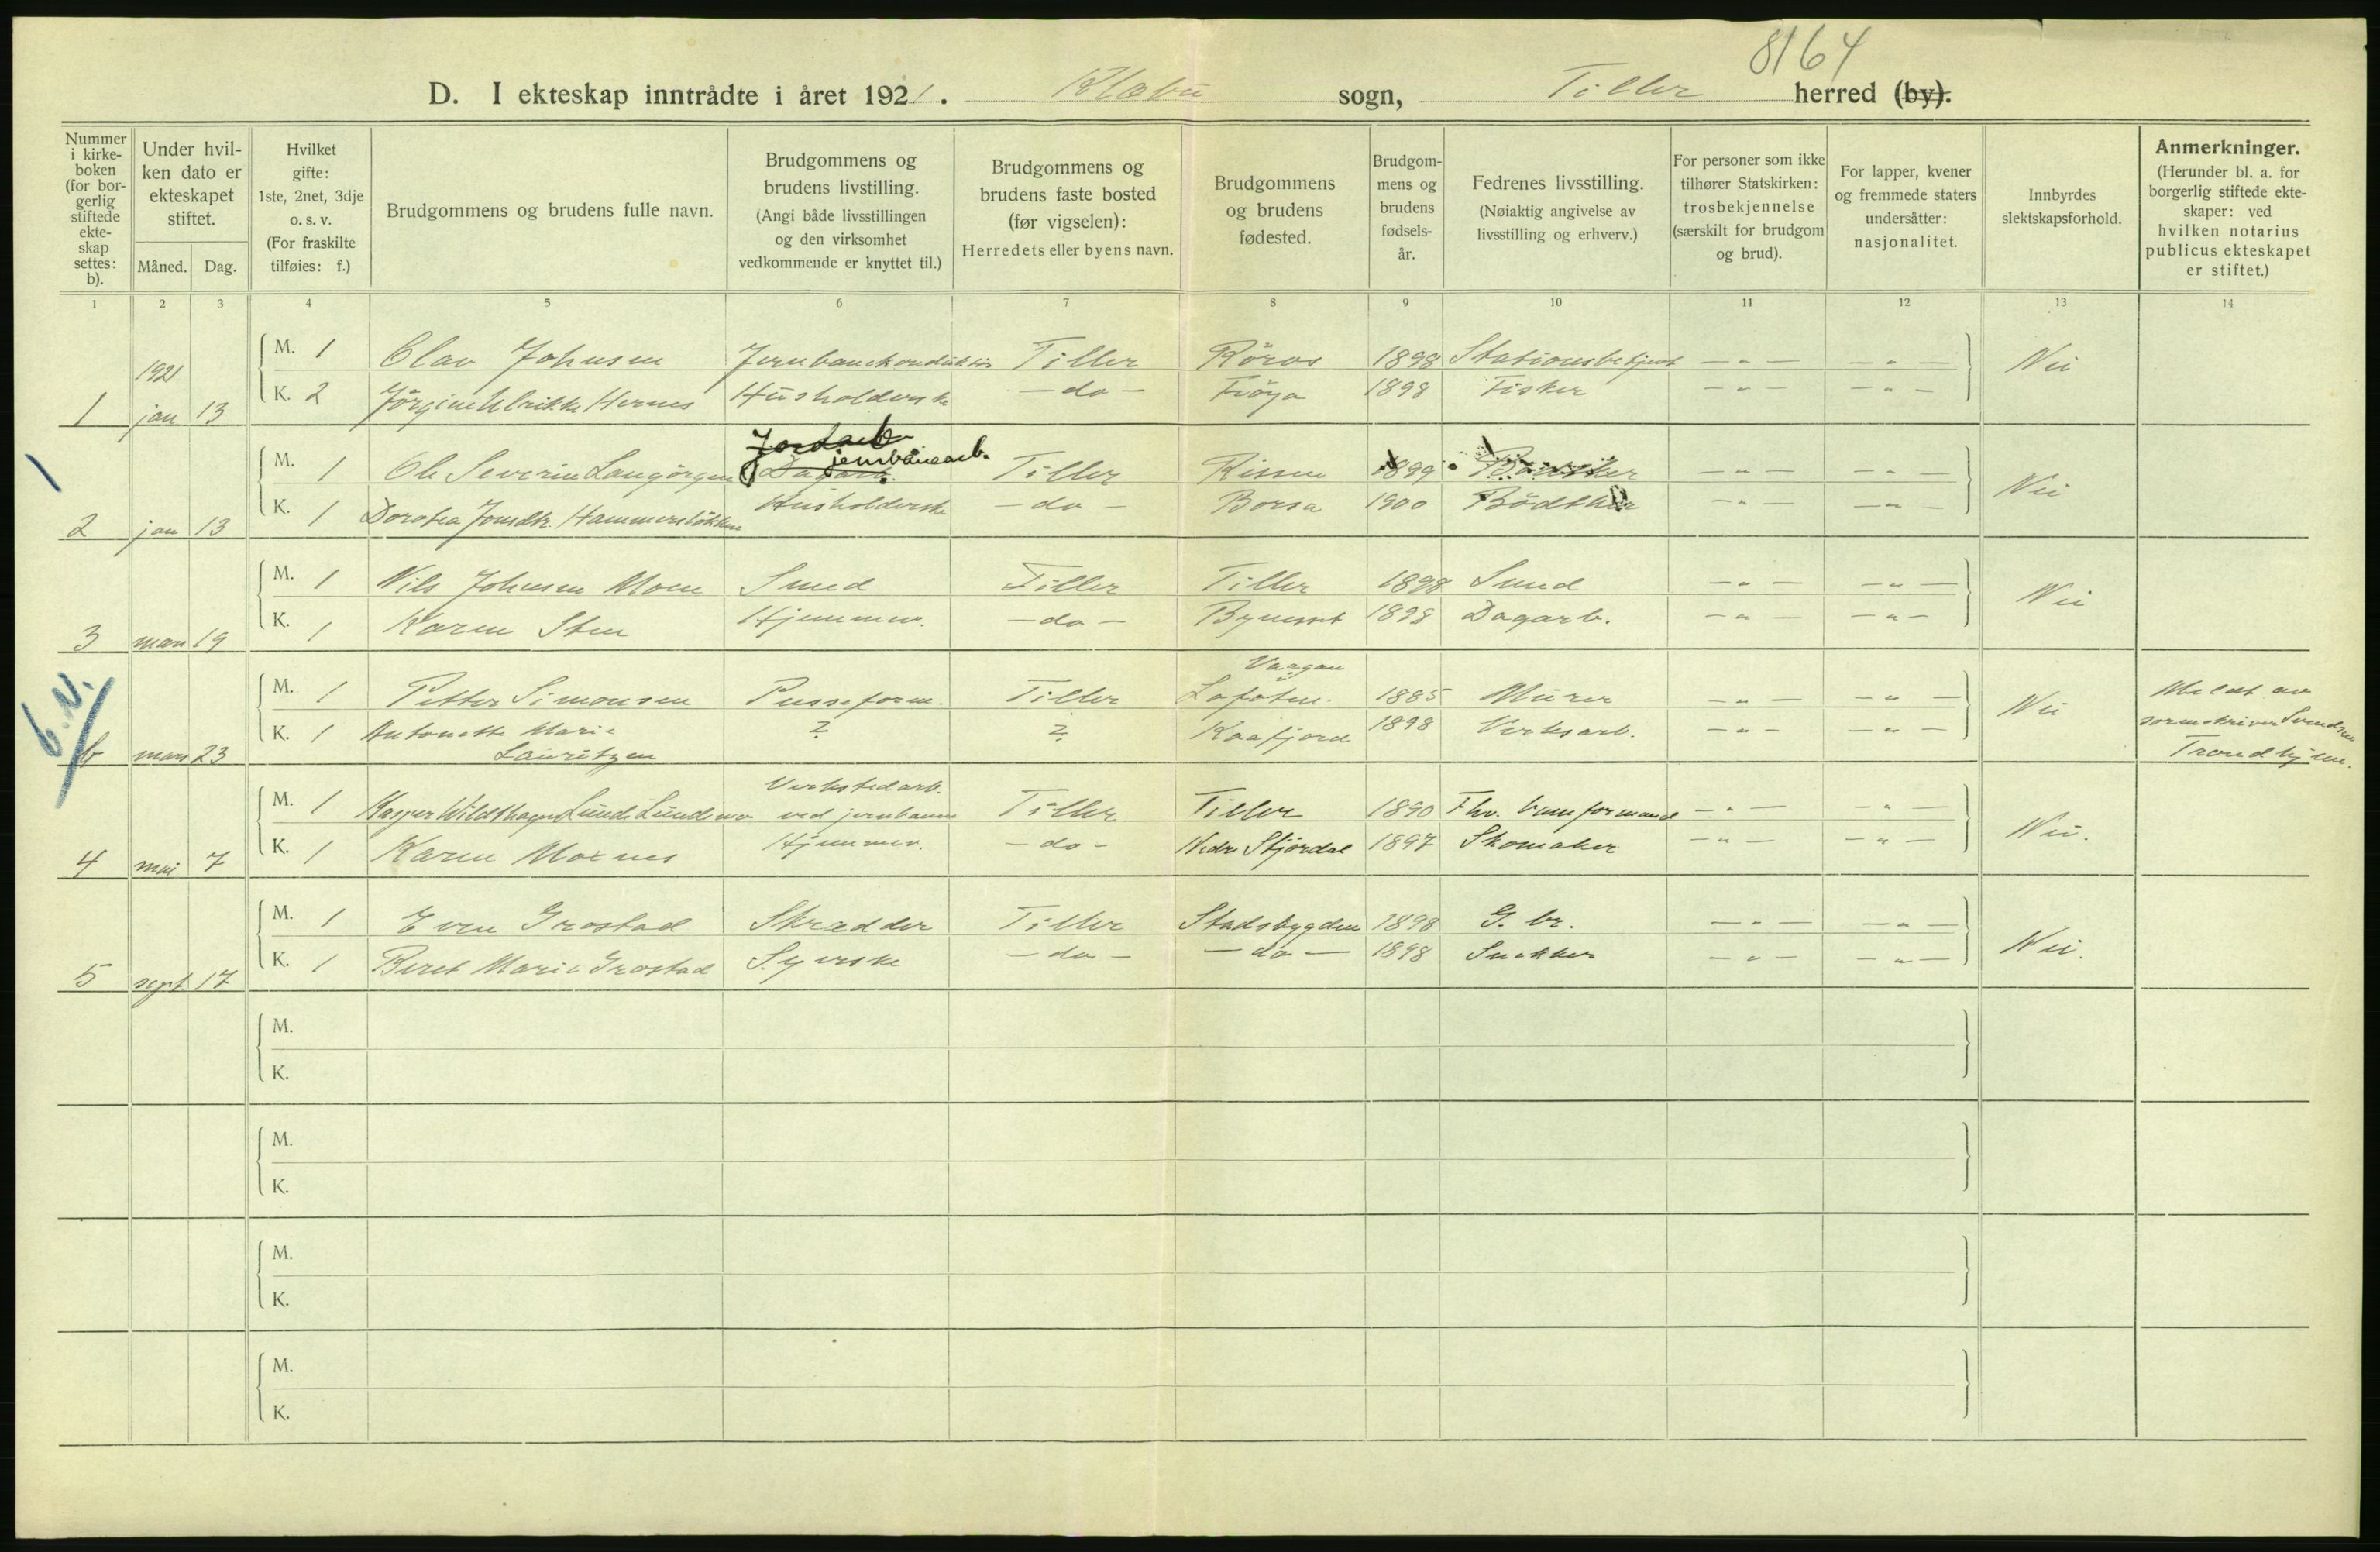 8164
D. I ekteskap inntrådte i året 1921. Klæbu sogn, Tiller herred (by).
Nummer i kirke-boken (for bor-gerlig stiftede ekte-skap settes: b).
Under hvil-ken dato er ekteskapet stiftet.
Måned. Dag.
Hvilket gifte: 1ste, 2net, 3dje o. s. v. (For fraskilte tilføies: f.)
Brudgommens og brudens fulle navn.
Brudgommens og brudens livstilling. (Angi både livsstillingen og den virksomhet vedkommende er knyttet til.)
Brudgommens og brudens faste bosted (før vigselen): Herredets eller byens navn.
Brudgommens og brudens fødested.
Brudgom-mens og brudens fødsels-år.
Fedrenes livsstilling. (Nøiaktig angivelse av livsstilling og erhverv.)
For personer som ikke tilhører Statskirken: trosbekjennelse (særskilt for brudgom og brud).
For lapper, kvener og fremmede staters undersåtter: nasjonalitet.
Innbyrdes slektskapsforhold.
Anmerkninger. (Herunder bl. a. for borgerlig stiftede ekte-skaper: ved hvilken notarius publicus ekteskapet er stiftet.)
1 2 3 4 5 6 7 8 9 10 11 12 13 14
1921
M. 1 Olav Johnsen Jernbanekonduktør Tiller Röros 1898 Stationsbetjent — " — — " — Nei
1 jan 13 K. 2 Jörgine Ulrikke Hernes Husholderske — do — Fröya 1898 Fisker — " — — " —
Jordarb
jernbanearb.
1
M. 1 Ole Severin Langörgen Dagarb. Tiller Rissen 1899 — " — — " — Nei
2 jan 13 K. 1 Dorotea Jonsdtr. Hammerslökken Husholderske — do — Borsa 1900 Bödtker — " — — " —
M. 1 Nils Johnsen Moen Smed Tiller Tiller 1898 Smed — " — — " — Nei
3 mars 19 K. 1 Karen Sten Hjemmev. — do — Bynesset 1898 Dagarb. — " — — " —
Vaagan
6.N.
M. 1 Petter Simonsen Pusseform. Tiller Lofoten. 1885 Murer — " — — " — Nei Meldt av
b mars 23 K. 1 Antonette Marie ? ? Kaafjord 1898 Verksarb. — " — — " — sorenskriver Svendsen
Lauritzen Trondhjem.
Verkstedarb.
M. 1 Kasper Wildthagen Lunde Lundemo ved jernbanen Tiller Tiller 1890 Fhv. baneformand — " — — " — Nei.
4 mai 7 K. 1 Karen Moxnes Hjemmev. — do — Nedr Stjördal 1897 Skomaker — " — — " —
M. 1 Even Grostad Skrædder Tiller Stadsbygden 1898 G. br. — " — — " — Nei.
5 sept. 17 K. 1 Beret Marie Grostad Syerske — do — — do — 1898 Snekker — " — — " —
M.
K.
M.
K.
M.
K.
M.
K.